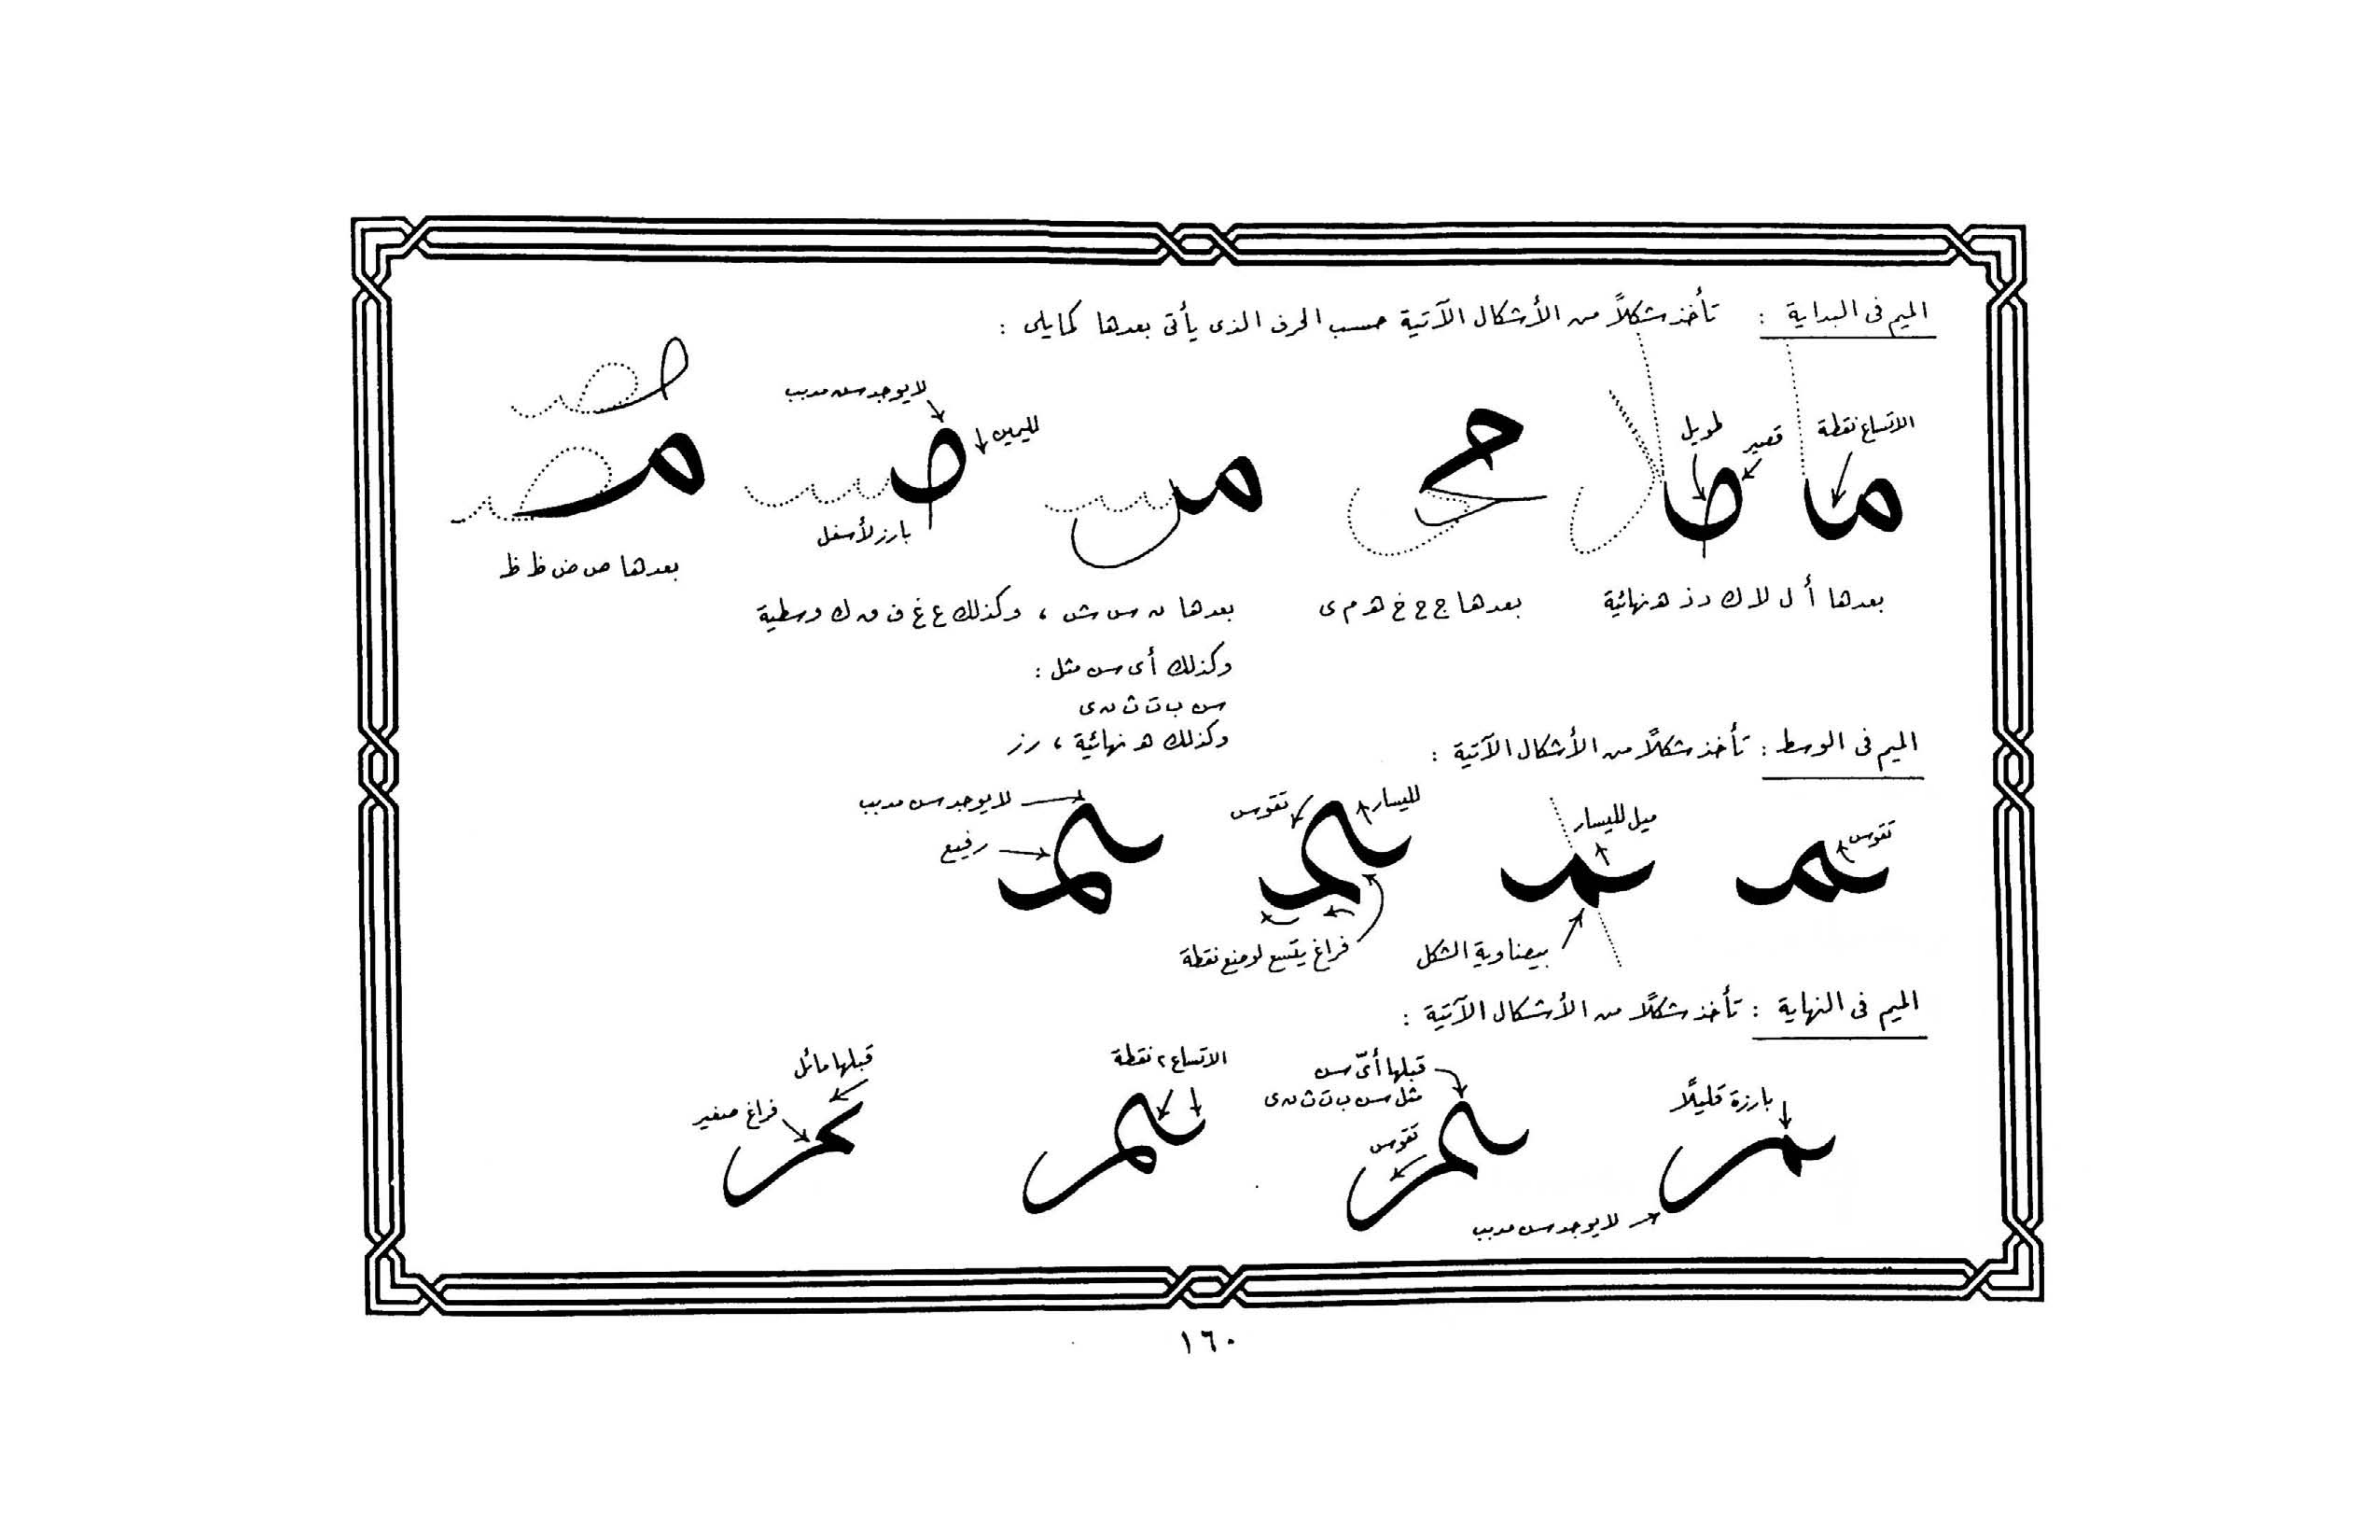 الميم فى البداية : تأخذ شكلاً من الأشكال الآتية حسب الحرف الذى يأتى بعدها كما يلى :
الاتساع نقطة
قصير
طويل
لليمين
لا يوجد سن مدبب
بارز لأسفل
بعدها أ ل لا ك د ذ هـ نهائية
بعدها ج ح خ هـ م ى
بعدها ن س ش ، وكذلك ع غ ف ق ك وسطية
بعدها ص ض ط ظ
وكذلك أى سن مثل :
سن ب ت ث ن ى
وكذلك هـ نهائية ، ر ز
الميم فى الوسط : تأخذ شكلاً من الأشكال الآتية :
تقوس
ميل لليسار
بيضاوية الشكل
لليسار
تقوس
فراغ يتسع لوضع نقطة
لا يوجد سن مدبب
رفيع
الميم فى النهاية : تأخذ شكلاً من الأشكال الآتية :
بارزة قليلاً
لا يوجد سن مدبب
قبلها أىّ سن
مثل سن ب ت ث ن ى
تقوس
الاتساع ٢ نقطة
قبلها مائل
فراغ صغير
١٦٠